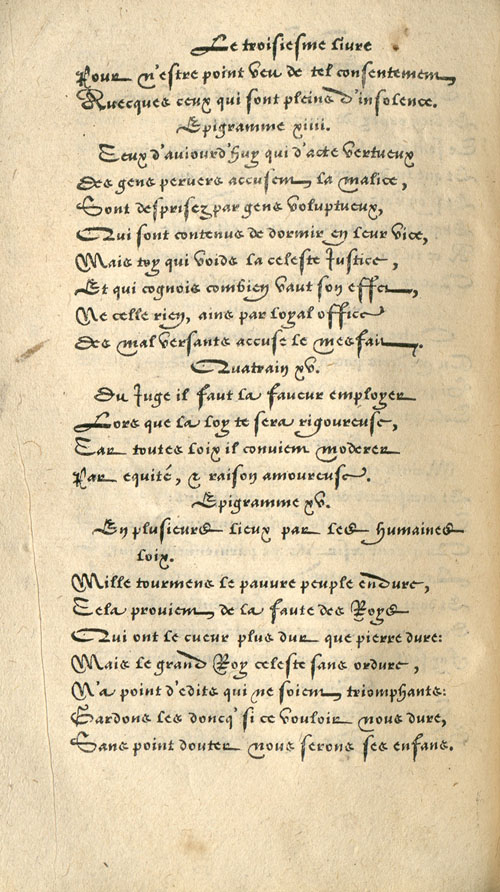 Le troisiesme livre
Pour n'estre point veu de tel consentement
Avecques ceux qui sont pleins d'insolence.
Epigramme xiiii.
Ceux d'auiourd'huy qui d'acte vertueux
Des gens pervers accusent la malice,
Sont desprisez par gens voluptueux,
Qui sont contenus de dormir en leur vice,
Mais toy qui voids la celeste Justice,
Et qui cognois combien vaut son effect,
Ne celle rien, ains par loyal office
Des mal versants accuse le mesfait.
Quatrain xv.
Du Juge il faut la faveur employer
Lors que la loy te sera rigoureuse,
Car toutes loix il convient moderer
Par equité, & raison amoureuse.
Epigramme xv.
En plusieurs lieux par les humaines
loix.
Mille tourmens le pauvre peuple endure,
Cela provient de la faute des Roys
Qui ont le cueur plus dur que pierre dure:
Mais le grand Roy celeste sans ordure,
N'a point d'edits qui ne soient triomphants:
Gardons les doncq' si ce vouloir nous dure,
Sans point douter nous serons ses enfans.